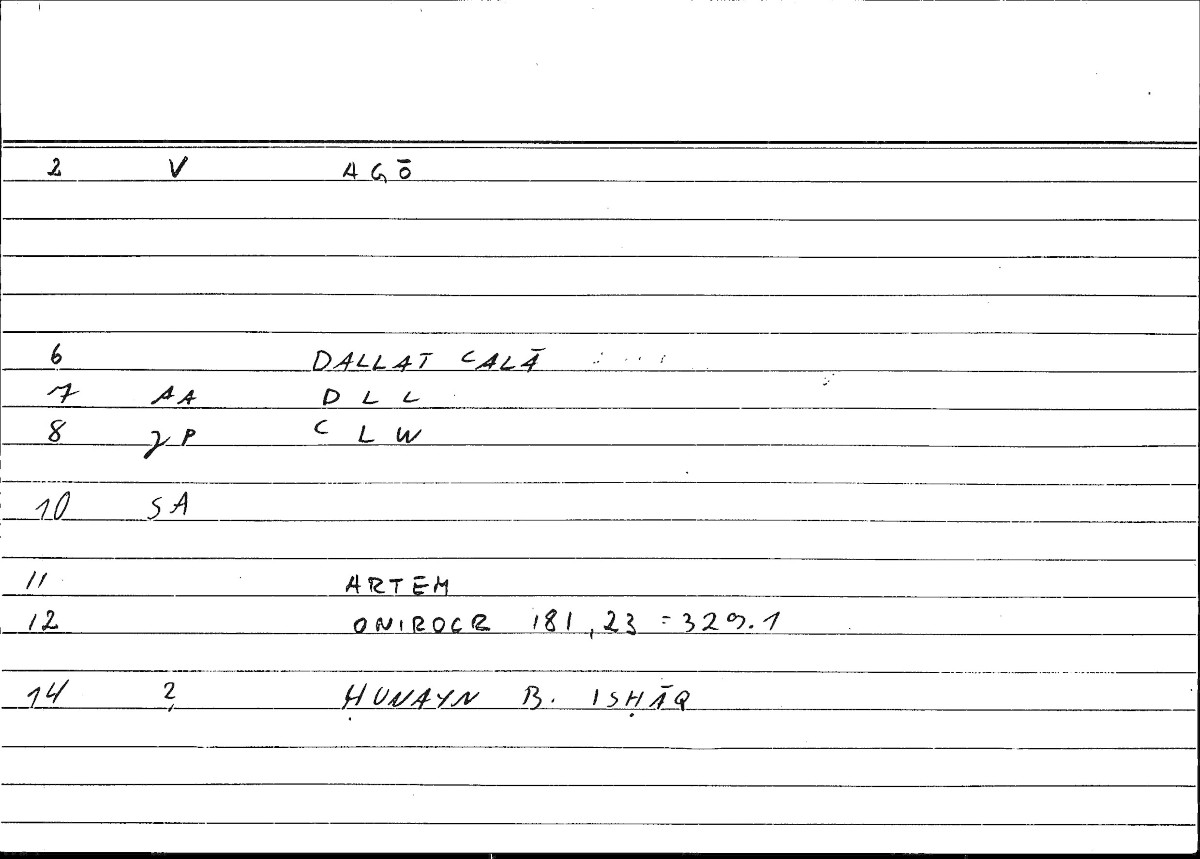 2 V AGŌ
6 DALLAT ʿALĀ
7 AA D L L
8 γP ʿ L W
10 SA
11 ARTEM
12 ONIROCR 181,23 = 329.1
14 2 ḤUNAYN B. ISḤĀQ